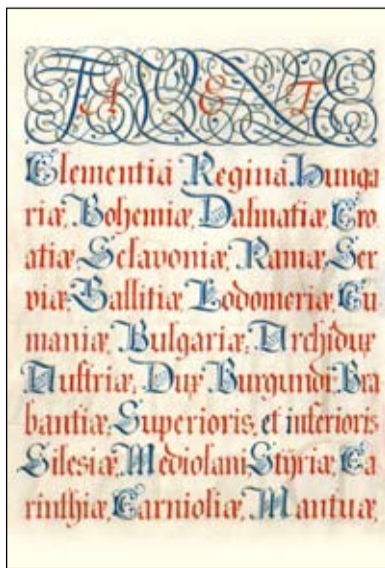 FAVENTE
Clementiâ Reginâ Hunga
riæ, Bohemiæ, Dalmatiæ, Cro
atiæ, Sclavoniæ, Ramæ, Ser
viæ, Gallitiæ, Lodomeriæ, Cu
maniæ, Bulgariæ, Archidux
Austriæ, Dux Burgundi, Bra
bantiæ, Superioris, et inferioris
Silesiæ, Mediolani, Styriæ, Ca
rinthiæ, Carnioliæ, Mantuæ,